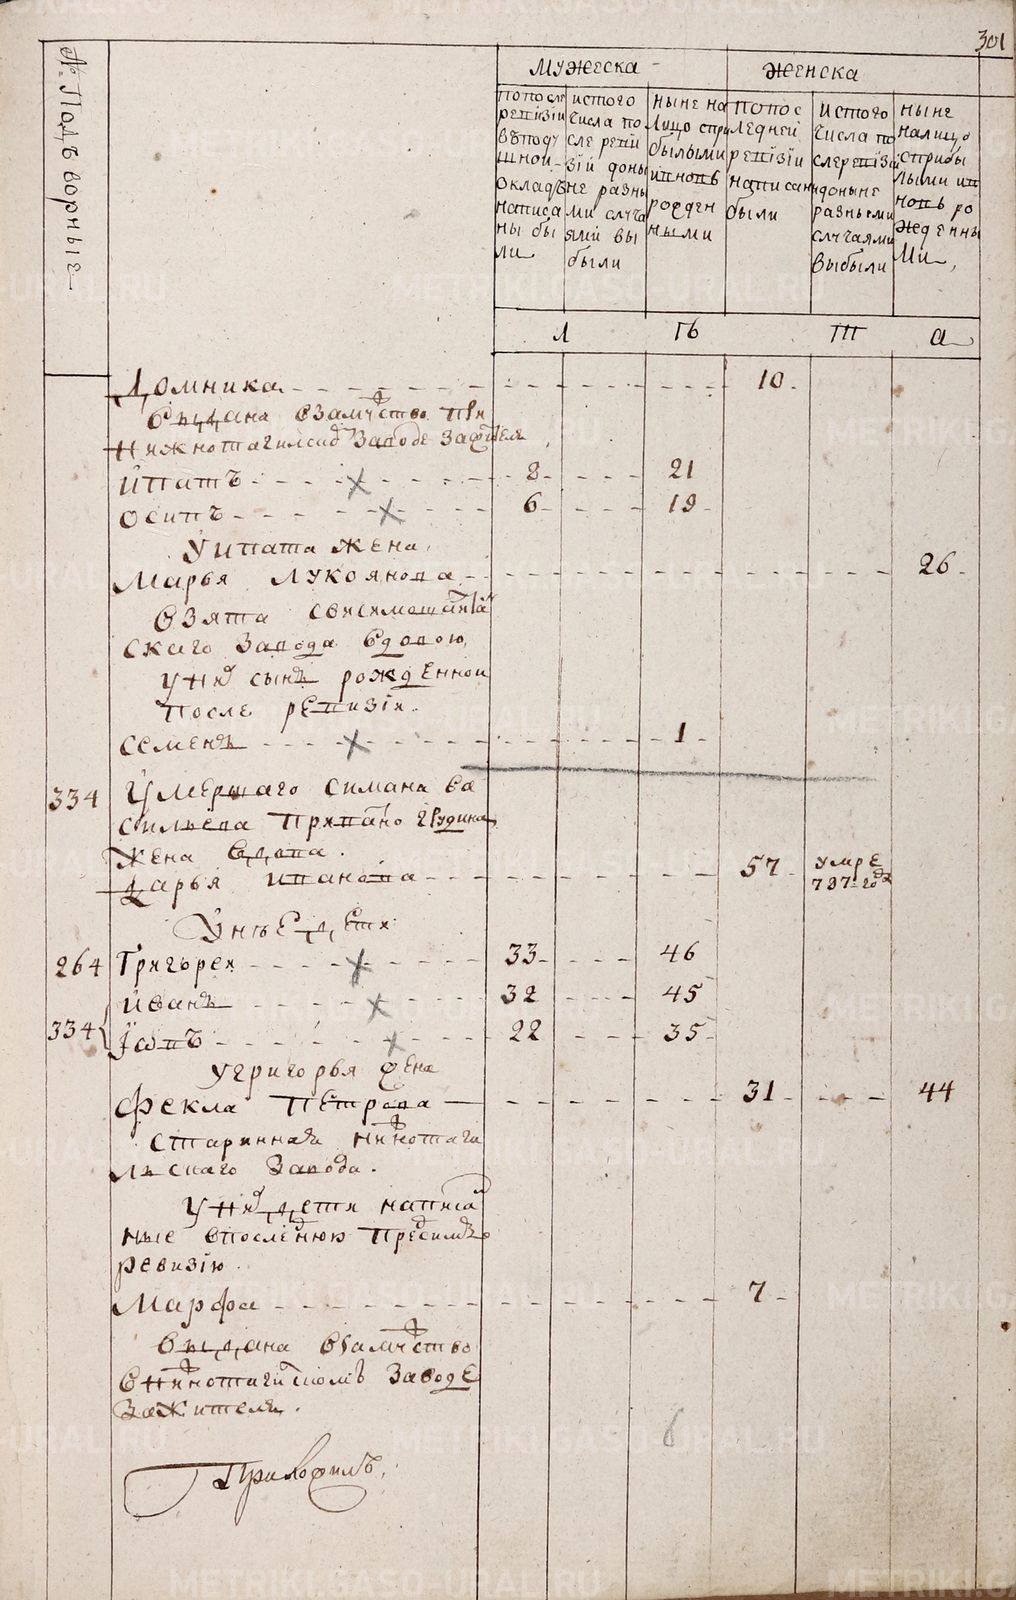 301
№ Подворныє
мужеска
женска
попосле
ревизіи
въподу
шной
окладъ
написа
ны бы
ли
истого
числа по
сле реви
зіи доны
не разны
ми случа
ями вы
были
ныне на
лицо спри
былыми
ивновь
рожден
ными
попос
ледней
ревизіи
написаны
были
истого
числа по
слеревизіи
доныне
разными
случаями
выбыли
ныне
налицо
сприбы
лыми ив
новь ро
жденны
ми
лѣта
Домника 10
выдана взамужство при
Нижнотагилском Заводе Зажителя
Ипатъ 8 21
Осипъ 6 19
У ипата жена
Марья Лукоянова 26
взята
скаго Завода вдовою
уних сынъ рожденной
после ревизіи
Семенъ 1
334 Умершаго Симана ва
сильева
жена вдова
Дарья иванова 57 умре
797 года
Унѣе дети
264 Григорей 33 46
Иванъ 32 45
334 Іовъ 22 35
угригорья жена
Фекла Петрова 31 44
старинная нижнотаги
льскаго Завода.
уних дети написан
ные впоследнюю пред симъ
ревизію.
Марфа 7
выдана взамужство
внижнотагилскомъ Заводе
Зажителя.
6